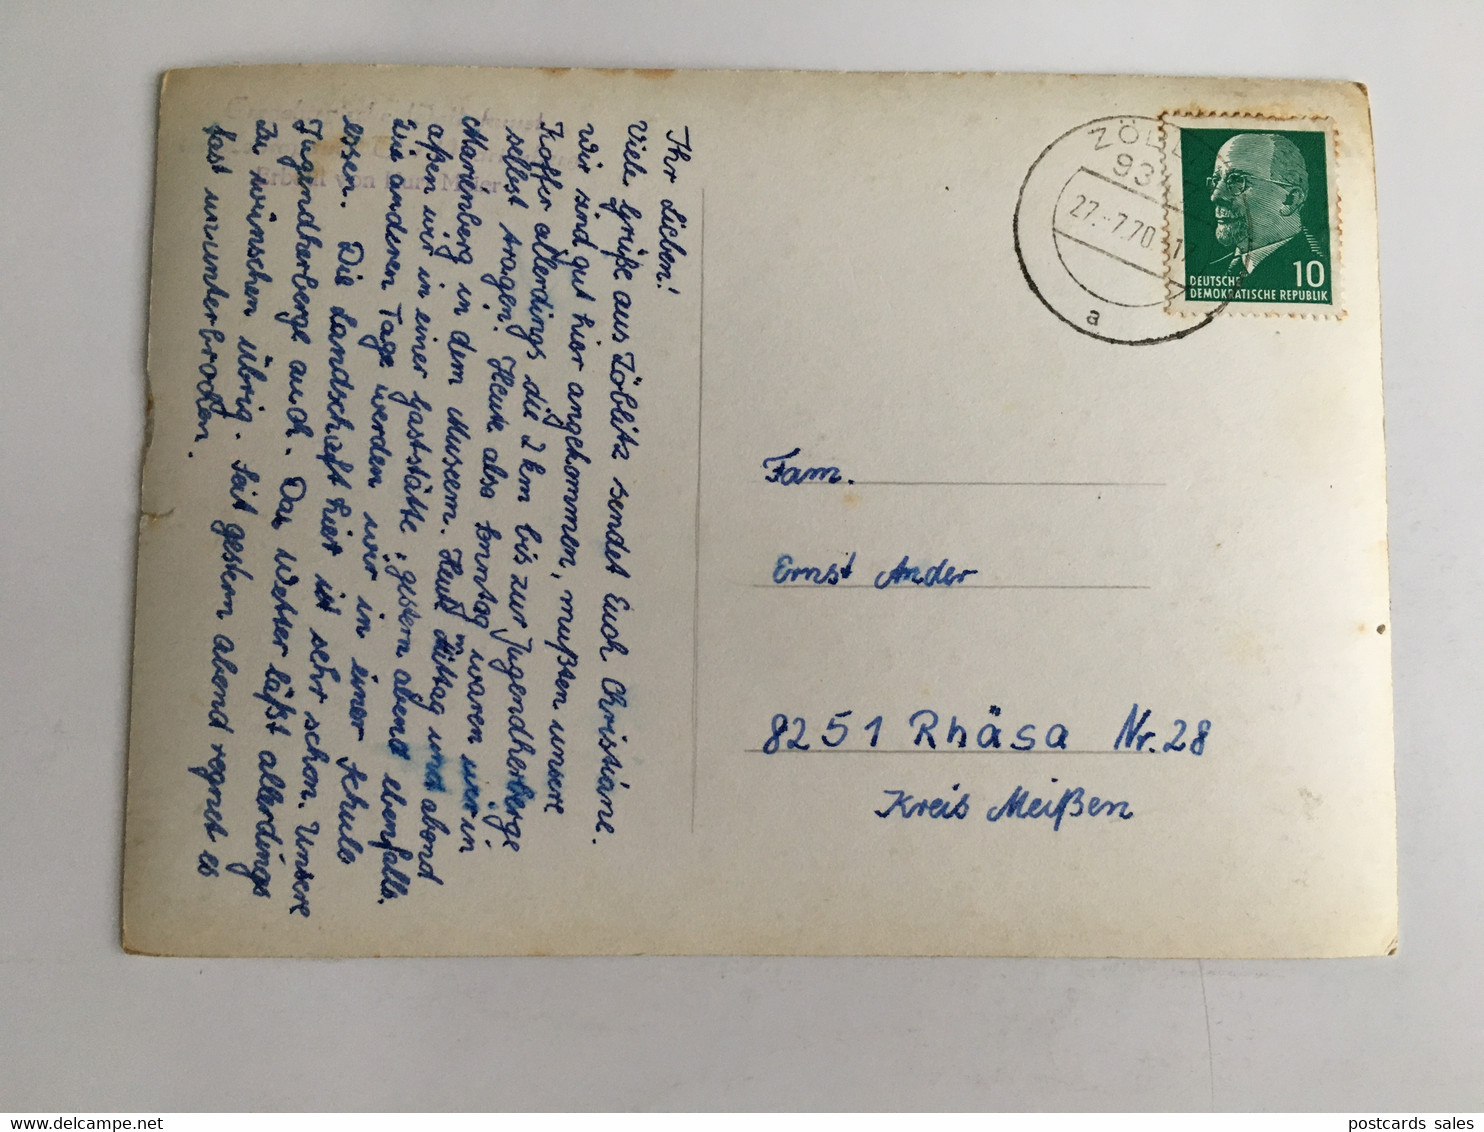 Ihr Lieben!
Viele Grüße aus Zöblitz sendet Euch Christiane.
Wir sind gut hier angekommen, mußten unsere
Koffer allerdings die 2 km bis zur Jugendherberge
selbst tragen. Heute also Sonntag waren wir in
Marienberg in dem Museem. Heute Mittag und abend
aßen wir in einer Gaststätte, gestern abend ebenfalls.
Die anderen Tage werden wir in einer Schule
essen. Die Landschaft hier ist sehr schön. Unsere
Jugendherberge auch. Das Wetter läßt allerdings
zu wünschen übrig. Seit gestern abend regnet es
fast ununterbrochen.
Erbaut von Kurt Meier
ZÖBLITZ
93
27.-7.70
a
10
DEUTSCHE
DEMOKRATISCHE REPUBLIK
Fam.
Ernst Ander
8251 Rhäsa Nr. 28
Kreis Meißen
postcards sales